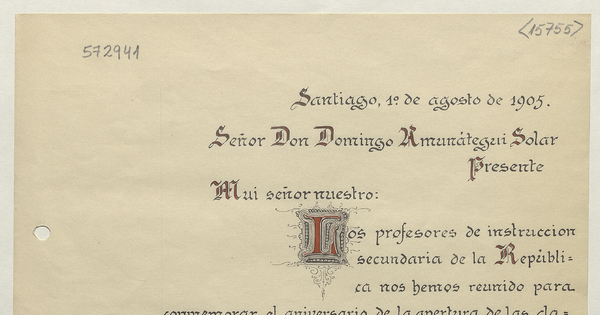 <15755>
572941
Santiago, 1º de agosto de 1905.
Señor Don Domingo Amunátegui Solar
Presente
Mui señor nuestro:
Los profesores de instruccion
secundaria de la Repúbli=
ca nos hemos reunido para
conmemorar el aniversario de la apertura de las cla=